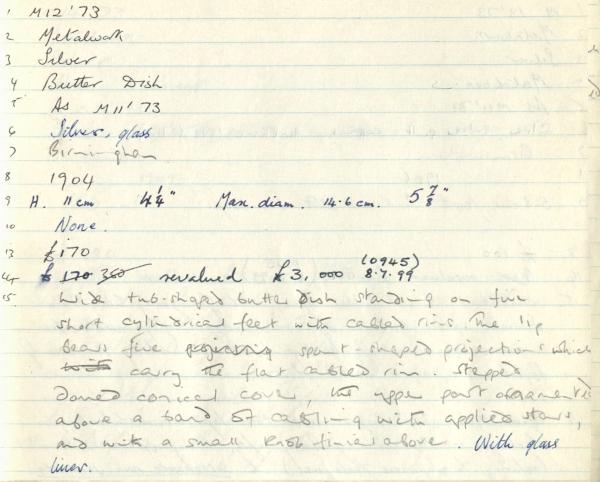 1 M12'73
2 Metalwork
3 Silver
4 Butter Dish
5 As M11'73
6 Silver, glass
7 Birmingham
8 1904
9 H. 11 cm 4¼" Max. diam. 14.6 cm. 5⅞"
10 None.
13 £170
14 £ 170 360 revalued £3,000 (0945) 8.7.99
15. Wide tub-shaped butter dish standing on five
short cylindrical feet with cabled rims. The lip
bears five projecting spout-shaped projections which
carry the flat cabled rim. Stepped
Domed conical cover, the upper part ornamented
above a band of cabling with applied stars,
and with a small knob finial above. With glass
liner.